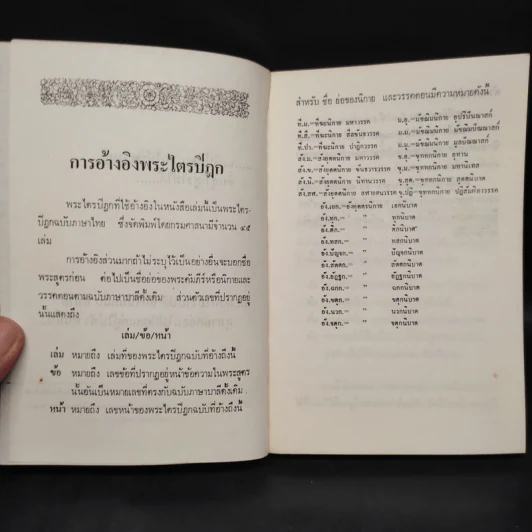 การอ้างอิงพระไตรปิฎก
พระไตรปิฎกที่ใช้อ้างอิงในหนังสือเล่มนี้เป็นพระไตร-
ปิฎกฉบับภาษาไทย ซึ่งจัดพิมพ์โดยกรมศาสนามีจำนวน ๔๕
เล่ม
การอ้างอิงส่วนมากถ้าไม่ระบุไว้เป็นอย่างอื่นจะบอกชื่อ
พระสูตรก่อน ต่อไปเป็นชื่อย่อของพระคัมภีร์หรือนิกายและ
วรรคตอนตามฉบับภาษาบาลีดั้งเดิม ส่วนตัวเลขที่ปรากฏอยู่
นั้นแสดงถึง
เล่ม/ข้อ/หน้า
เล่ม หมายถึง เล่มที่ของพระไตรปิฎกฉบับที่อ้างถึงนี้
ข้อ หมายถึง เลขข้อที่ปรากฏอยู่หน้าข้อความในพระสูตร
นั้นอันเป็นหมายเลขที่ตรงกับฉบับภาษาบาลีดั้งเดิม
หน้า หมายถึง เลขหน้าของพระไตรปิฎกฉบับที่อ้างถึงนี้
สำหรับ ชื่อ ย่อของนิกาย และวรรคตอนมีความหมายดังนี้
ที.ม.—ทีฆะนิกาย มหาวรรค ม.อุ.—มัชฌิมนิกาย อุปริปัณณาสก์
ที.สี.—ทีฆะนิกาย สีลขันธวรรค ม.ม.—มัชฌิมนิกาย มัชฌิมปัณณาสก์
ที.ปา.—ทีฆะนิกาย ปาฏิกวรรค ม.มู.—มัชฌิมนิกาย มูลปัณณาสก์
สัง.ม.—สังยุตตนิกาย มหาวรรค ขุ.อุ.—ขุททกนิกาย อุทาน
สัง.ข.—สังยุตตนิกาย ขันธวารวรรค ขุ.ม.—ขุททกนิกาย มหานิเทส
สัง.นิ.—สังยุตตนิกาย นิทานวรรค ขุ.สุ.—ขุททกนิกาย สุตตนิบาต
สัง.สฬ.—สังยุตตนิกาย สฬายตนวรรค ขุ.ปฏิ.—ขุททกนิกาย ปฏิสัมภิทาวรรค
อัง.เอก.—อังคุตตรนิกาย เอกนิบาต
อัง.ทุก.— ” ทุกนิบาต
อัง.ติก.— ” ติกนิบาต
อัง.ทสก.— ” ทสกนิบาต
อัง.ปัญจก.— ” ปัญจกนิบาต
อัง.สัตตก.— ” สัตตกนิบาต
อัง.อัฏฐก.— ” อัฏฐกนิบาต
อัง.ฉกก.— ” ฉกกนิบาต
อัง.จตุก.— ” จตุกนิบาต
อัง.นวก.— ” นวกนิบาต
อัง.จตุก.— ” จตุกนิบาต